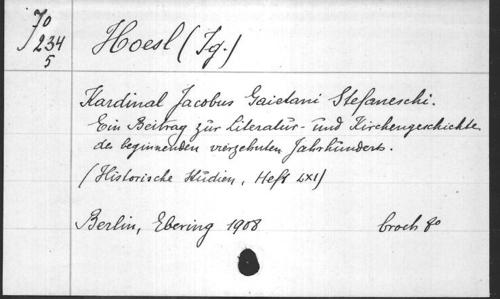 Jo
234
5
Hoesl (Ig.)
Kardinal Jacobus Gaietani Stefaneschi.
Ein Beitrag zur Literatur- und Kirchengeschichte
des beginnenden vierzehnten Jahrhunderts.
(Historische Studien, Heft LXI)
Berlin, Ebering 1908 broch 8o